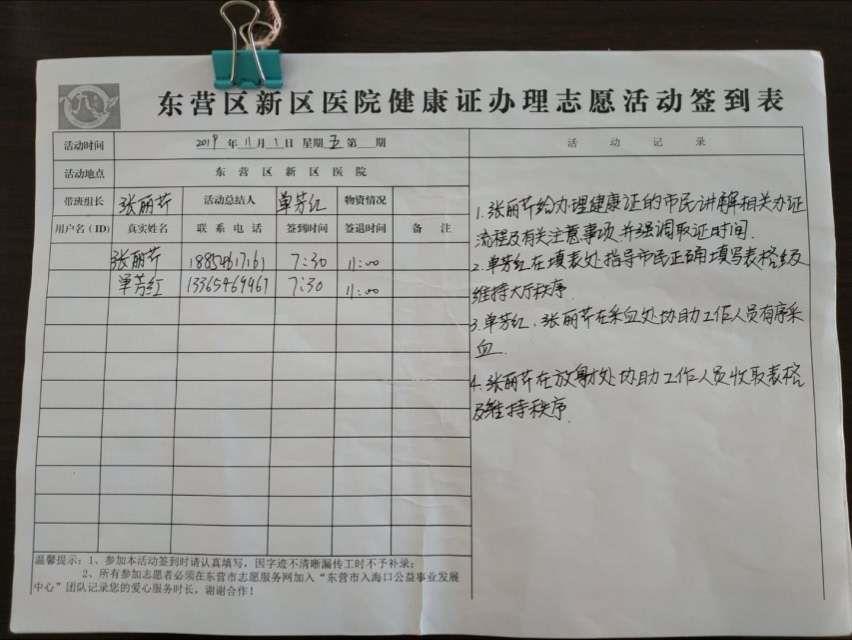 东营区新区医院健康证办理志愿活动签到表
活动时间 2019年11月1日 星期五 第 期 活动记录
活动地点 东营区新区医院
带班组长 张丽芹 活动总结人 单芳红 物资情况
用户名(ID) 真实姓名 联系电话 签到时间 签退时间 备注
张丽芹 18854617161 7:30 11:00
单芳红 13365469961 7:30 11:00
1.张丽芹给办理健康证的市民讲解相关办证
流程及有关注意事项并强调取证时间.
2.单芳红在填表处指导市民正确填写表格及
维持大厅秩序.
3.单芳红、张丽芹在采血处协助工作人员有序采
血.
4.张丽芹在放射处协助工作人员收取表格
及维持秩序.
温馨提示:1、参加本活动签到时请认真填写,因字迹不清晰漏传工时不予补录;
2、所有参加志愿者必须在东营市志愿服务网加入“东营市入海口公益事业发展
中心”团队记录您的爱心服务时长,谢谢合作!